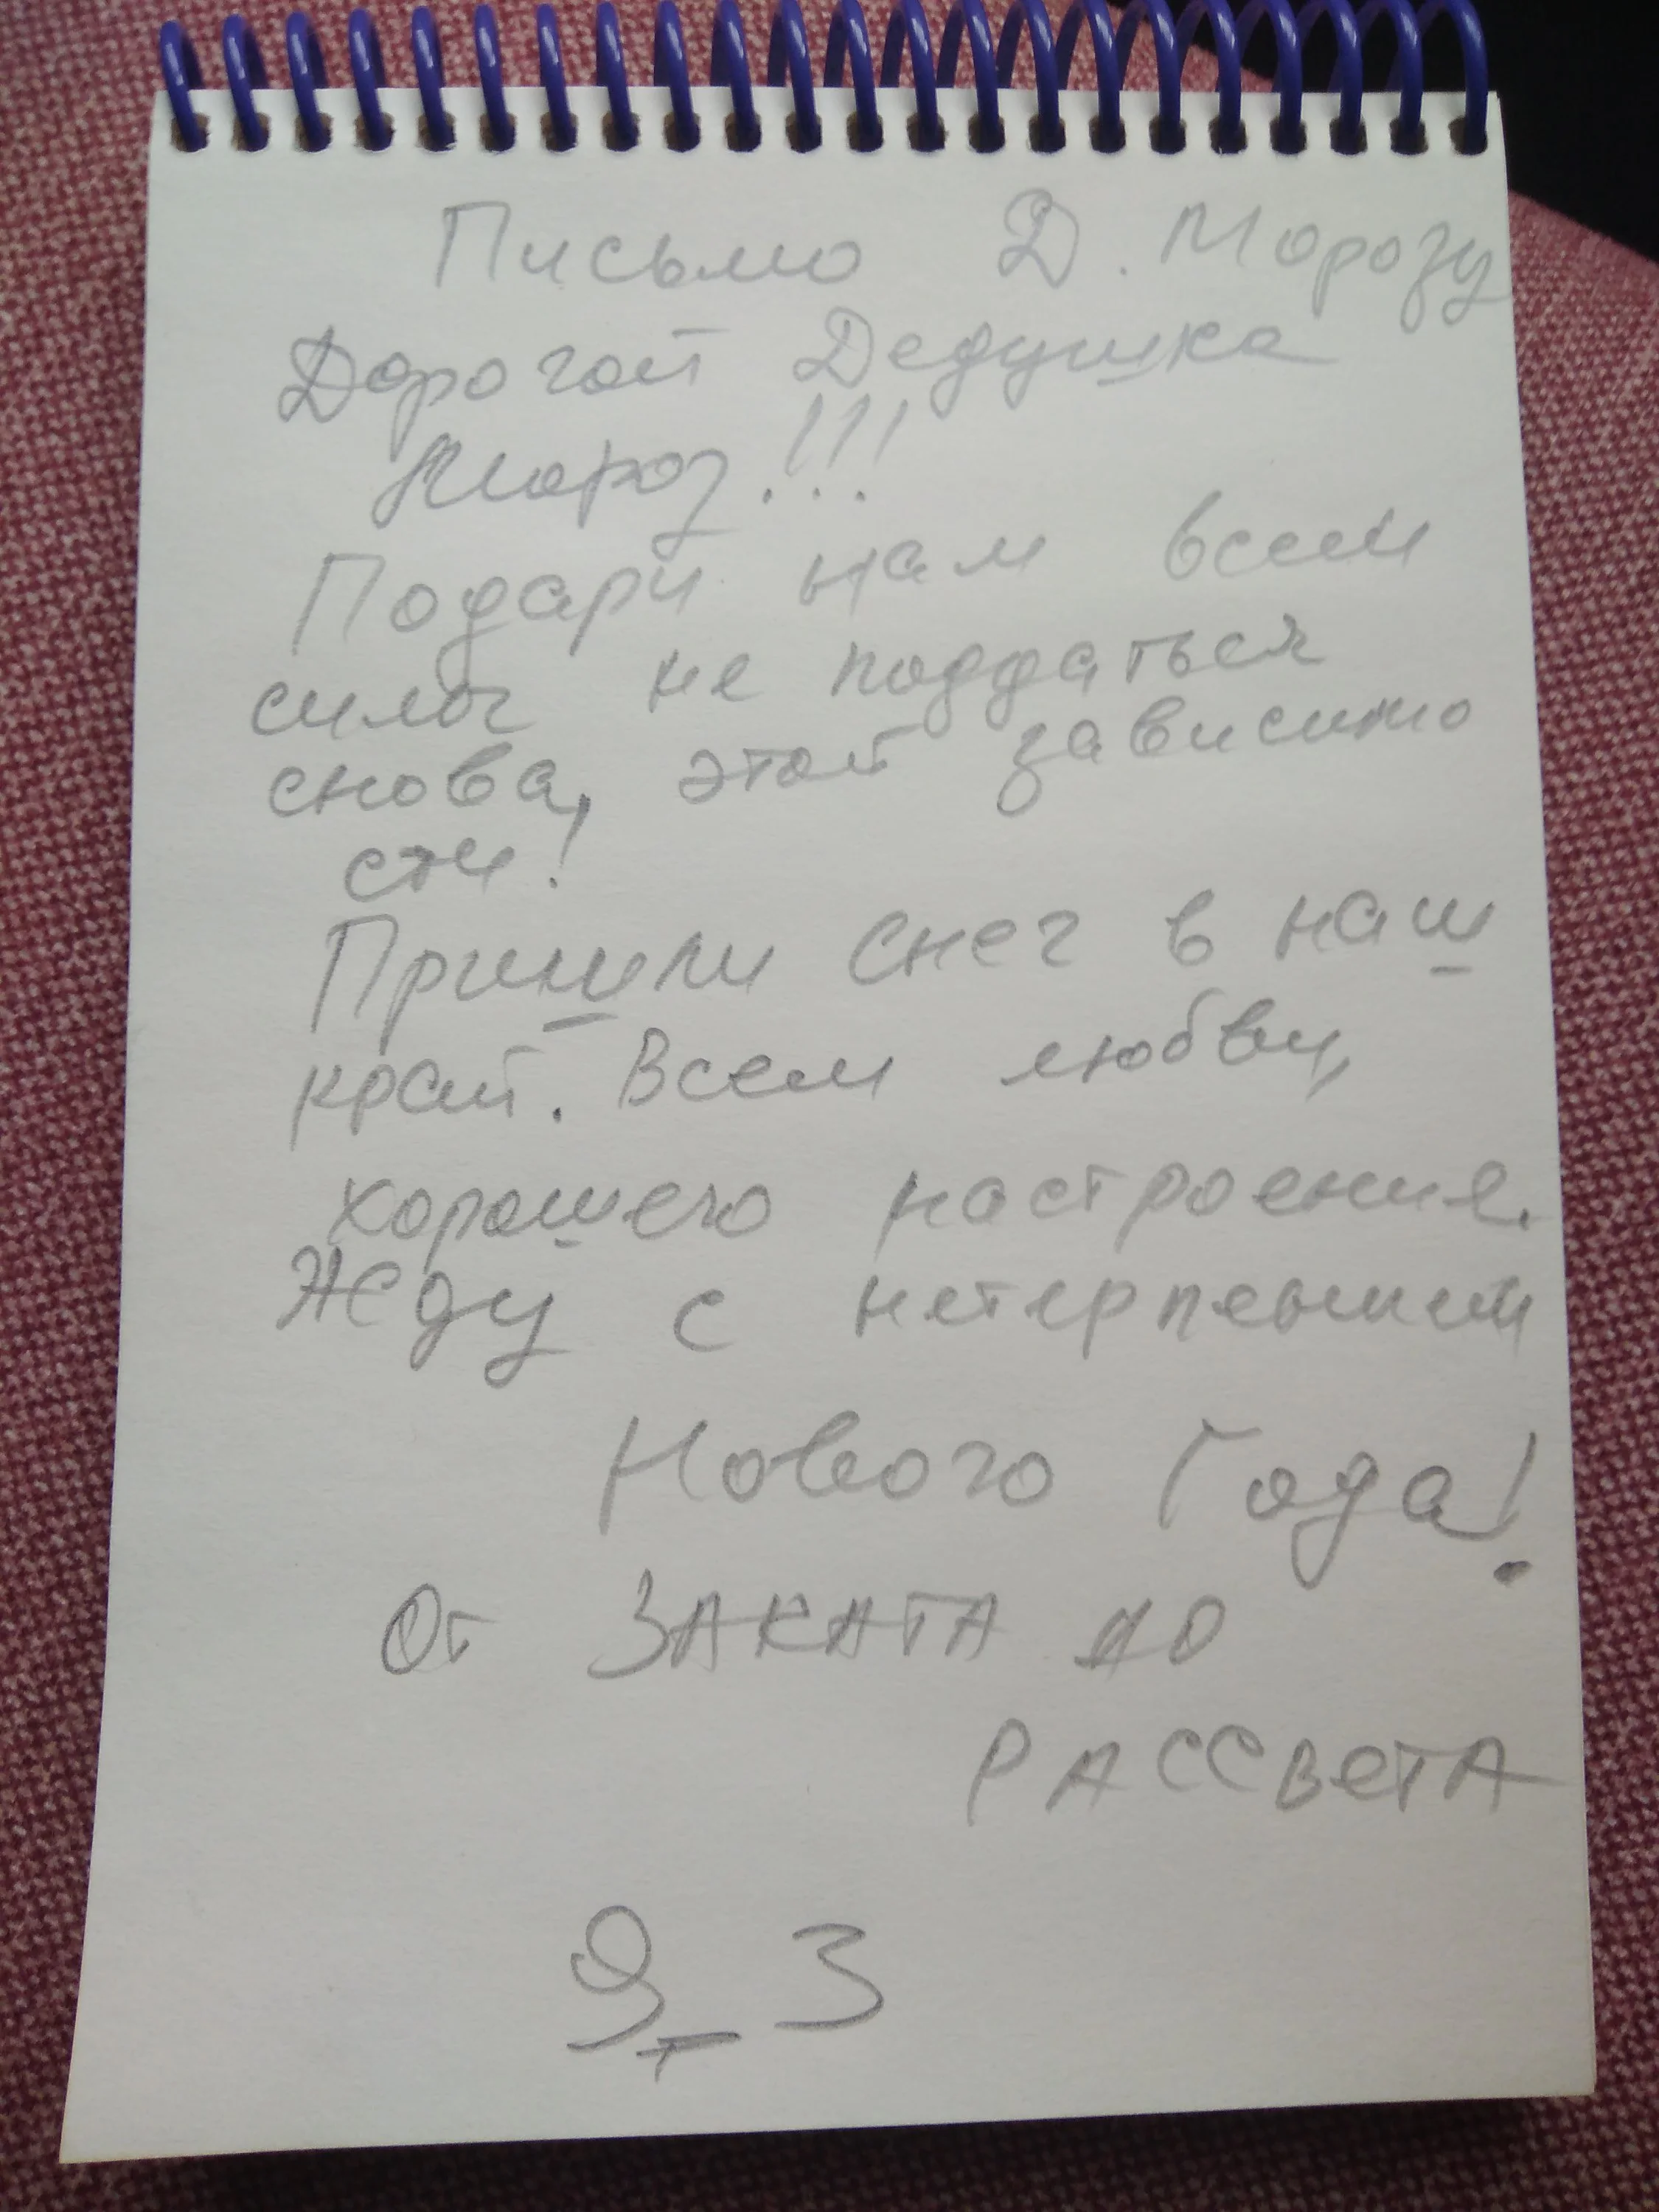 Письмо Д. Морозу
Дорогой Дедушка
Мороз!!!
Подари нам всем
силы не поддаться
снова, этой зависимо
сти!
Пришли снег в наш
край. Всем любви,
хорошего настроение.
Жду с нетерпением
Нового Года!
От ЗАКАТА ДО
РАССВЕТА
З